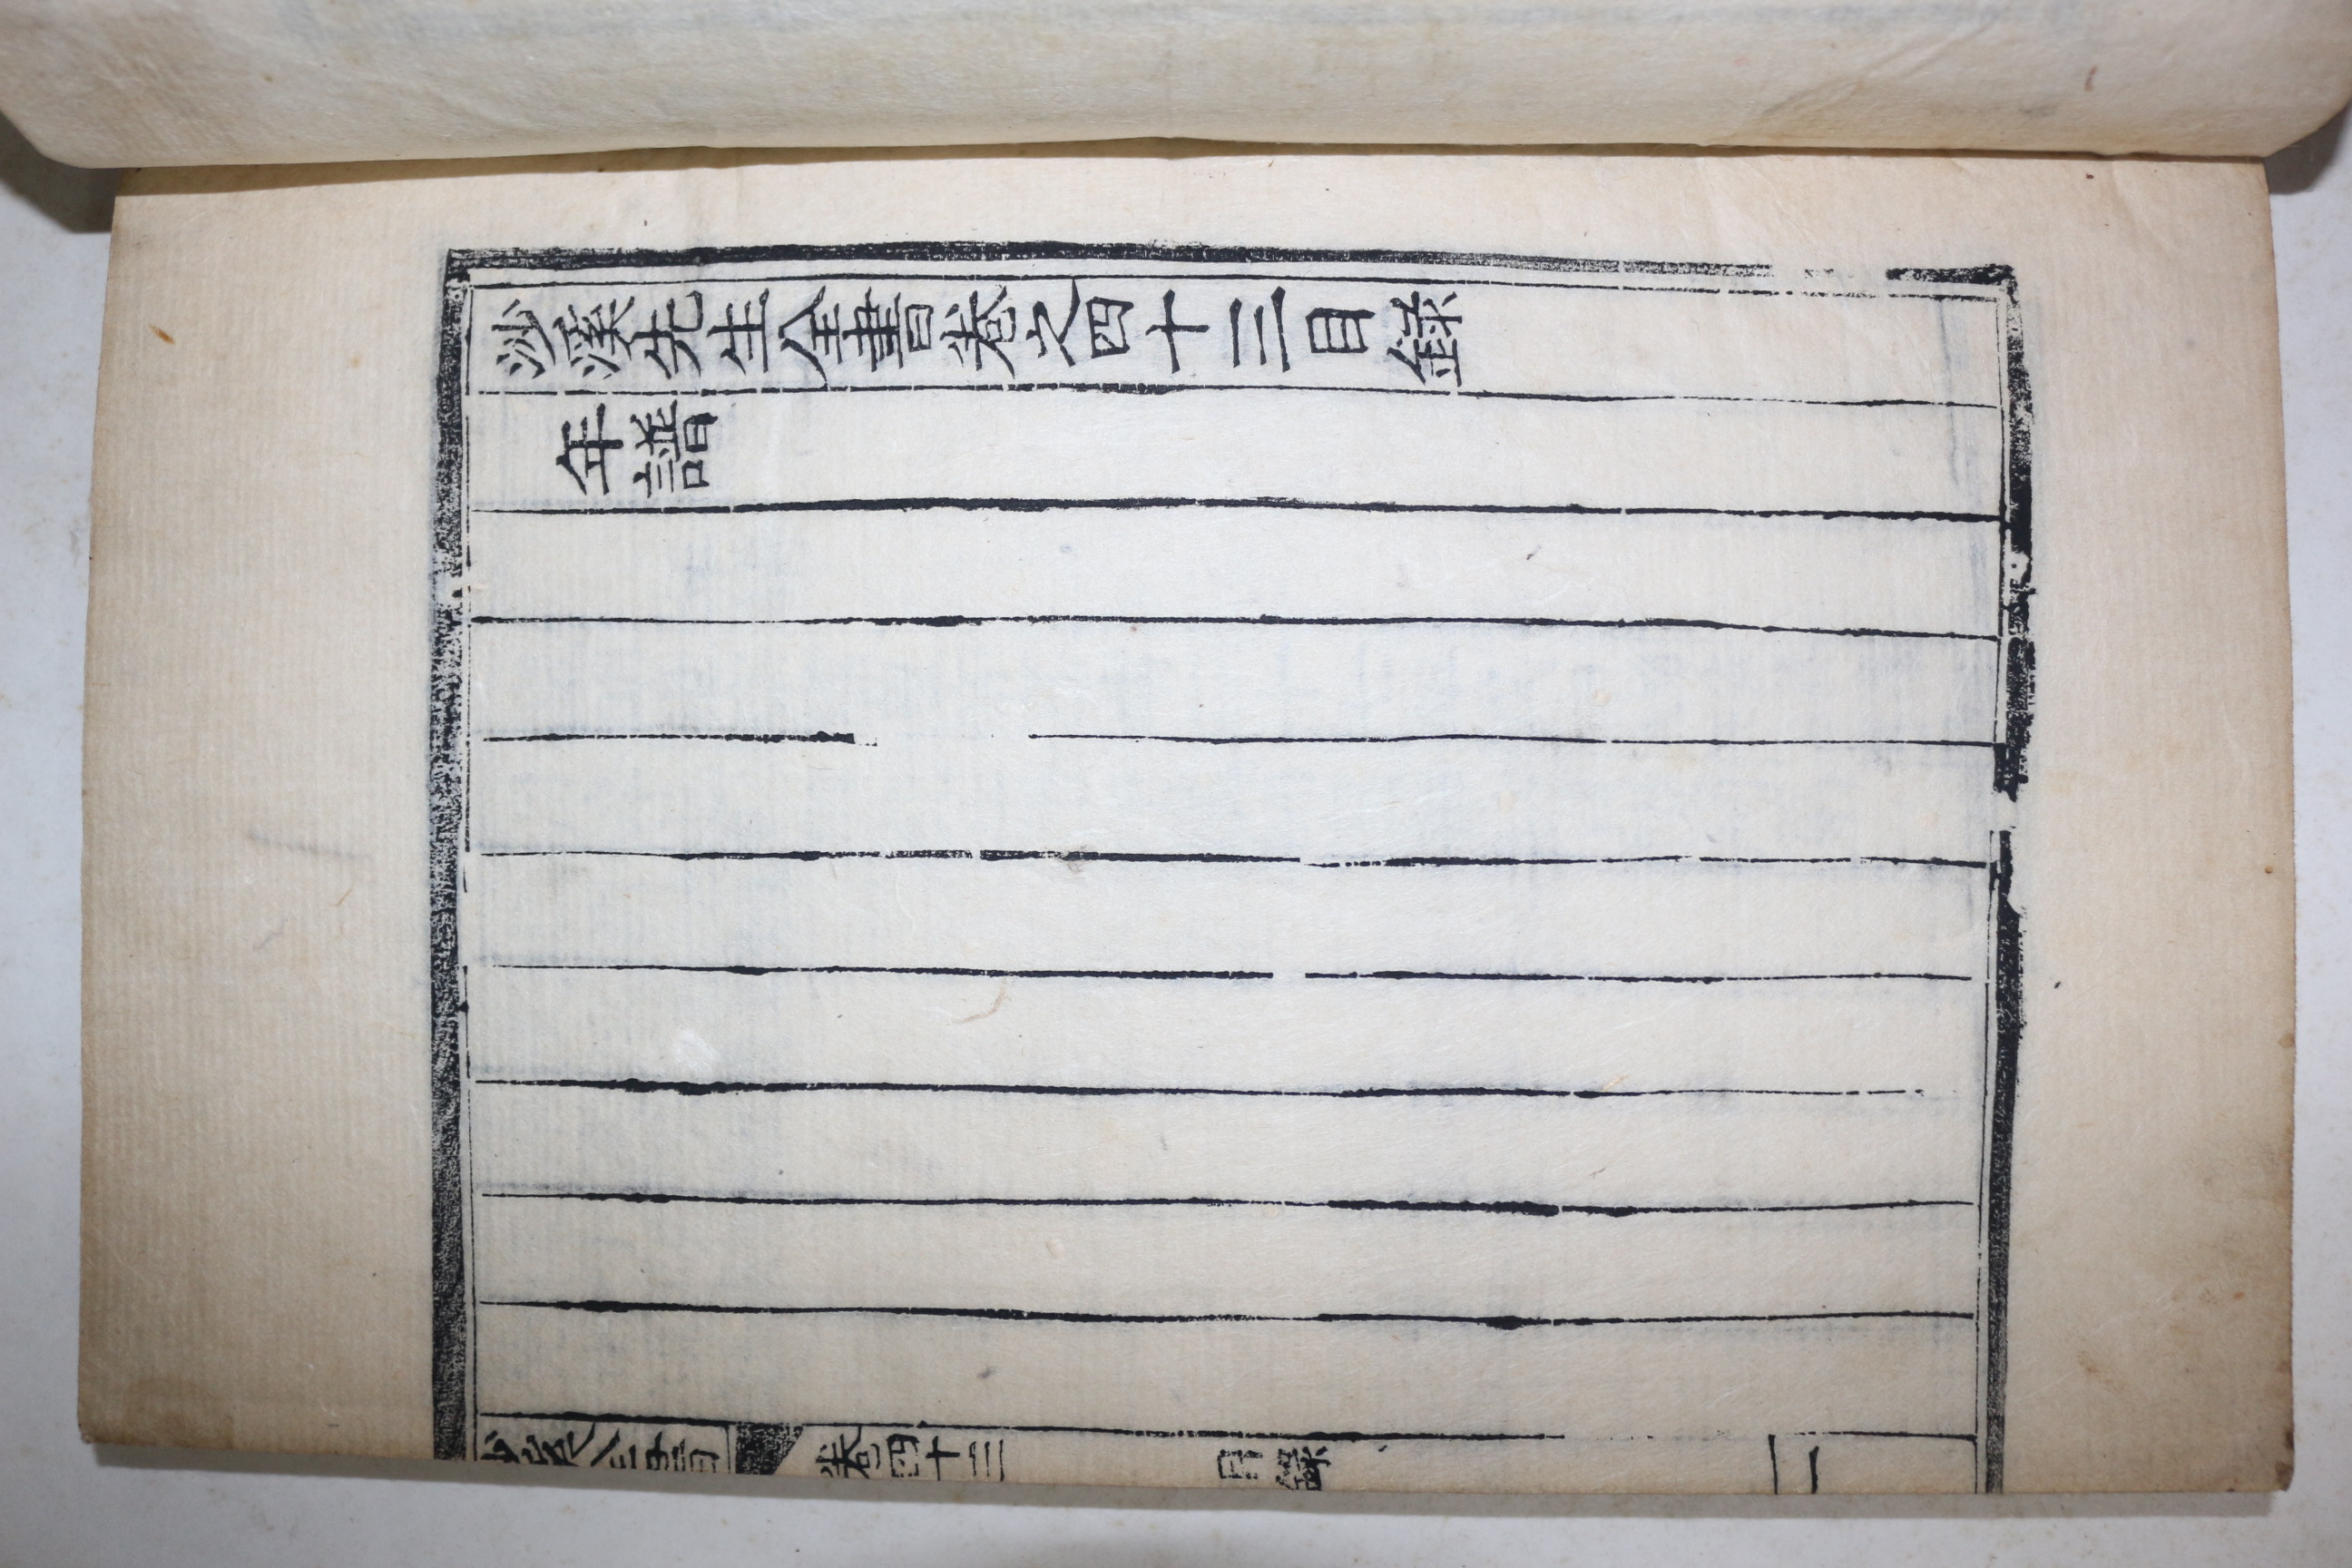 沙溪先生全書卷之四十三目錄
年譜
沙溪全書 卷四十三 目錄 一